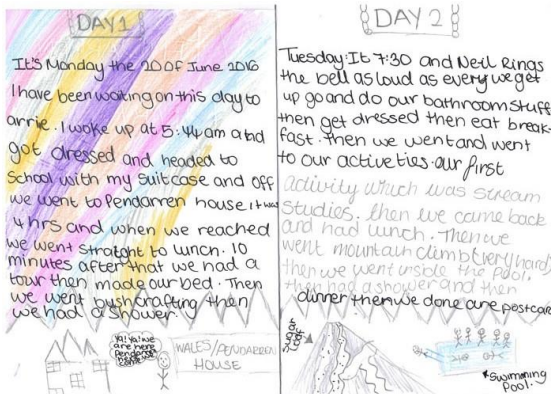 DAY 1
It's Monday the 20 of June 2016
I have been waiting on this day to
arrie. I woke up at 5:44 am and
got dressed and headed to
School with my suitcase and off
we went to Pendarren house. it was
4 hrs and when we reached
we went straight to lunch. 10
minutes after that we had a
tour then made our bed. Then
we went bushcrafting then
we had a shower.
Ya! Ya! we
are here
Pendarren
house
WALES/PENDARREN
HOUSE
DAY 2
Tuesday: It 7:30 and Neil Rings
the bell as loud as every we get
up go and do our bathroom stuff
then get dressed then eat break-
fast. then we went and went
to our activeties. our first
activity which was stream
studies. then we came back
and had lunch. Then we
went mountain climb (very hard)
then we went inside the Pool.
then had a shower and then
dinner then we done are postcard
Sugar
Loaf
Swimming
Pool.